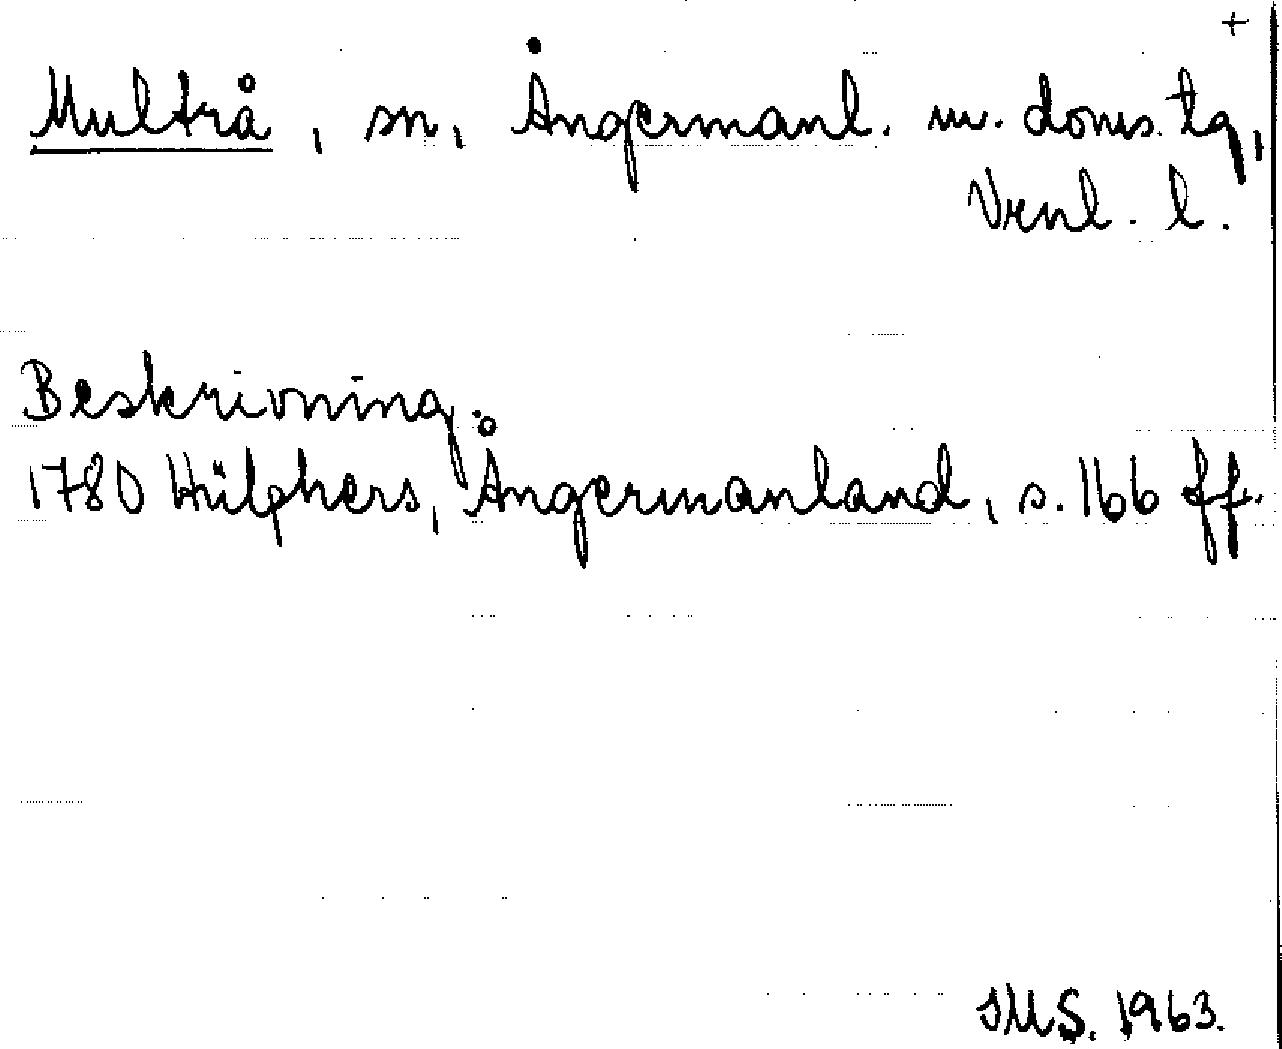 +
Multrå, sn, Ångermanl. m. doms. tg,
Vrnl. l.
Beskrivning.
1780 Hülphers, Ångermanland, s. 166 ff.
SMS. 1963.